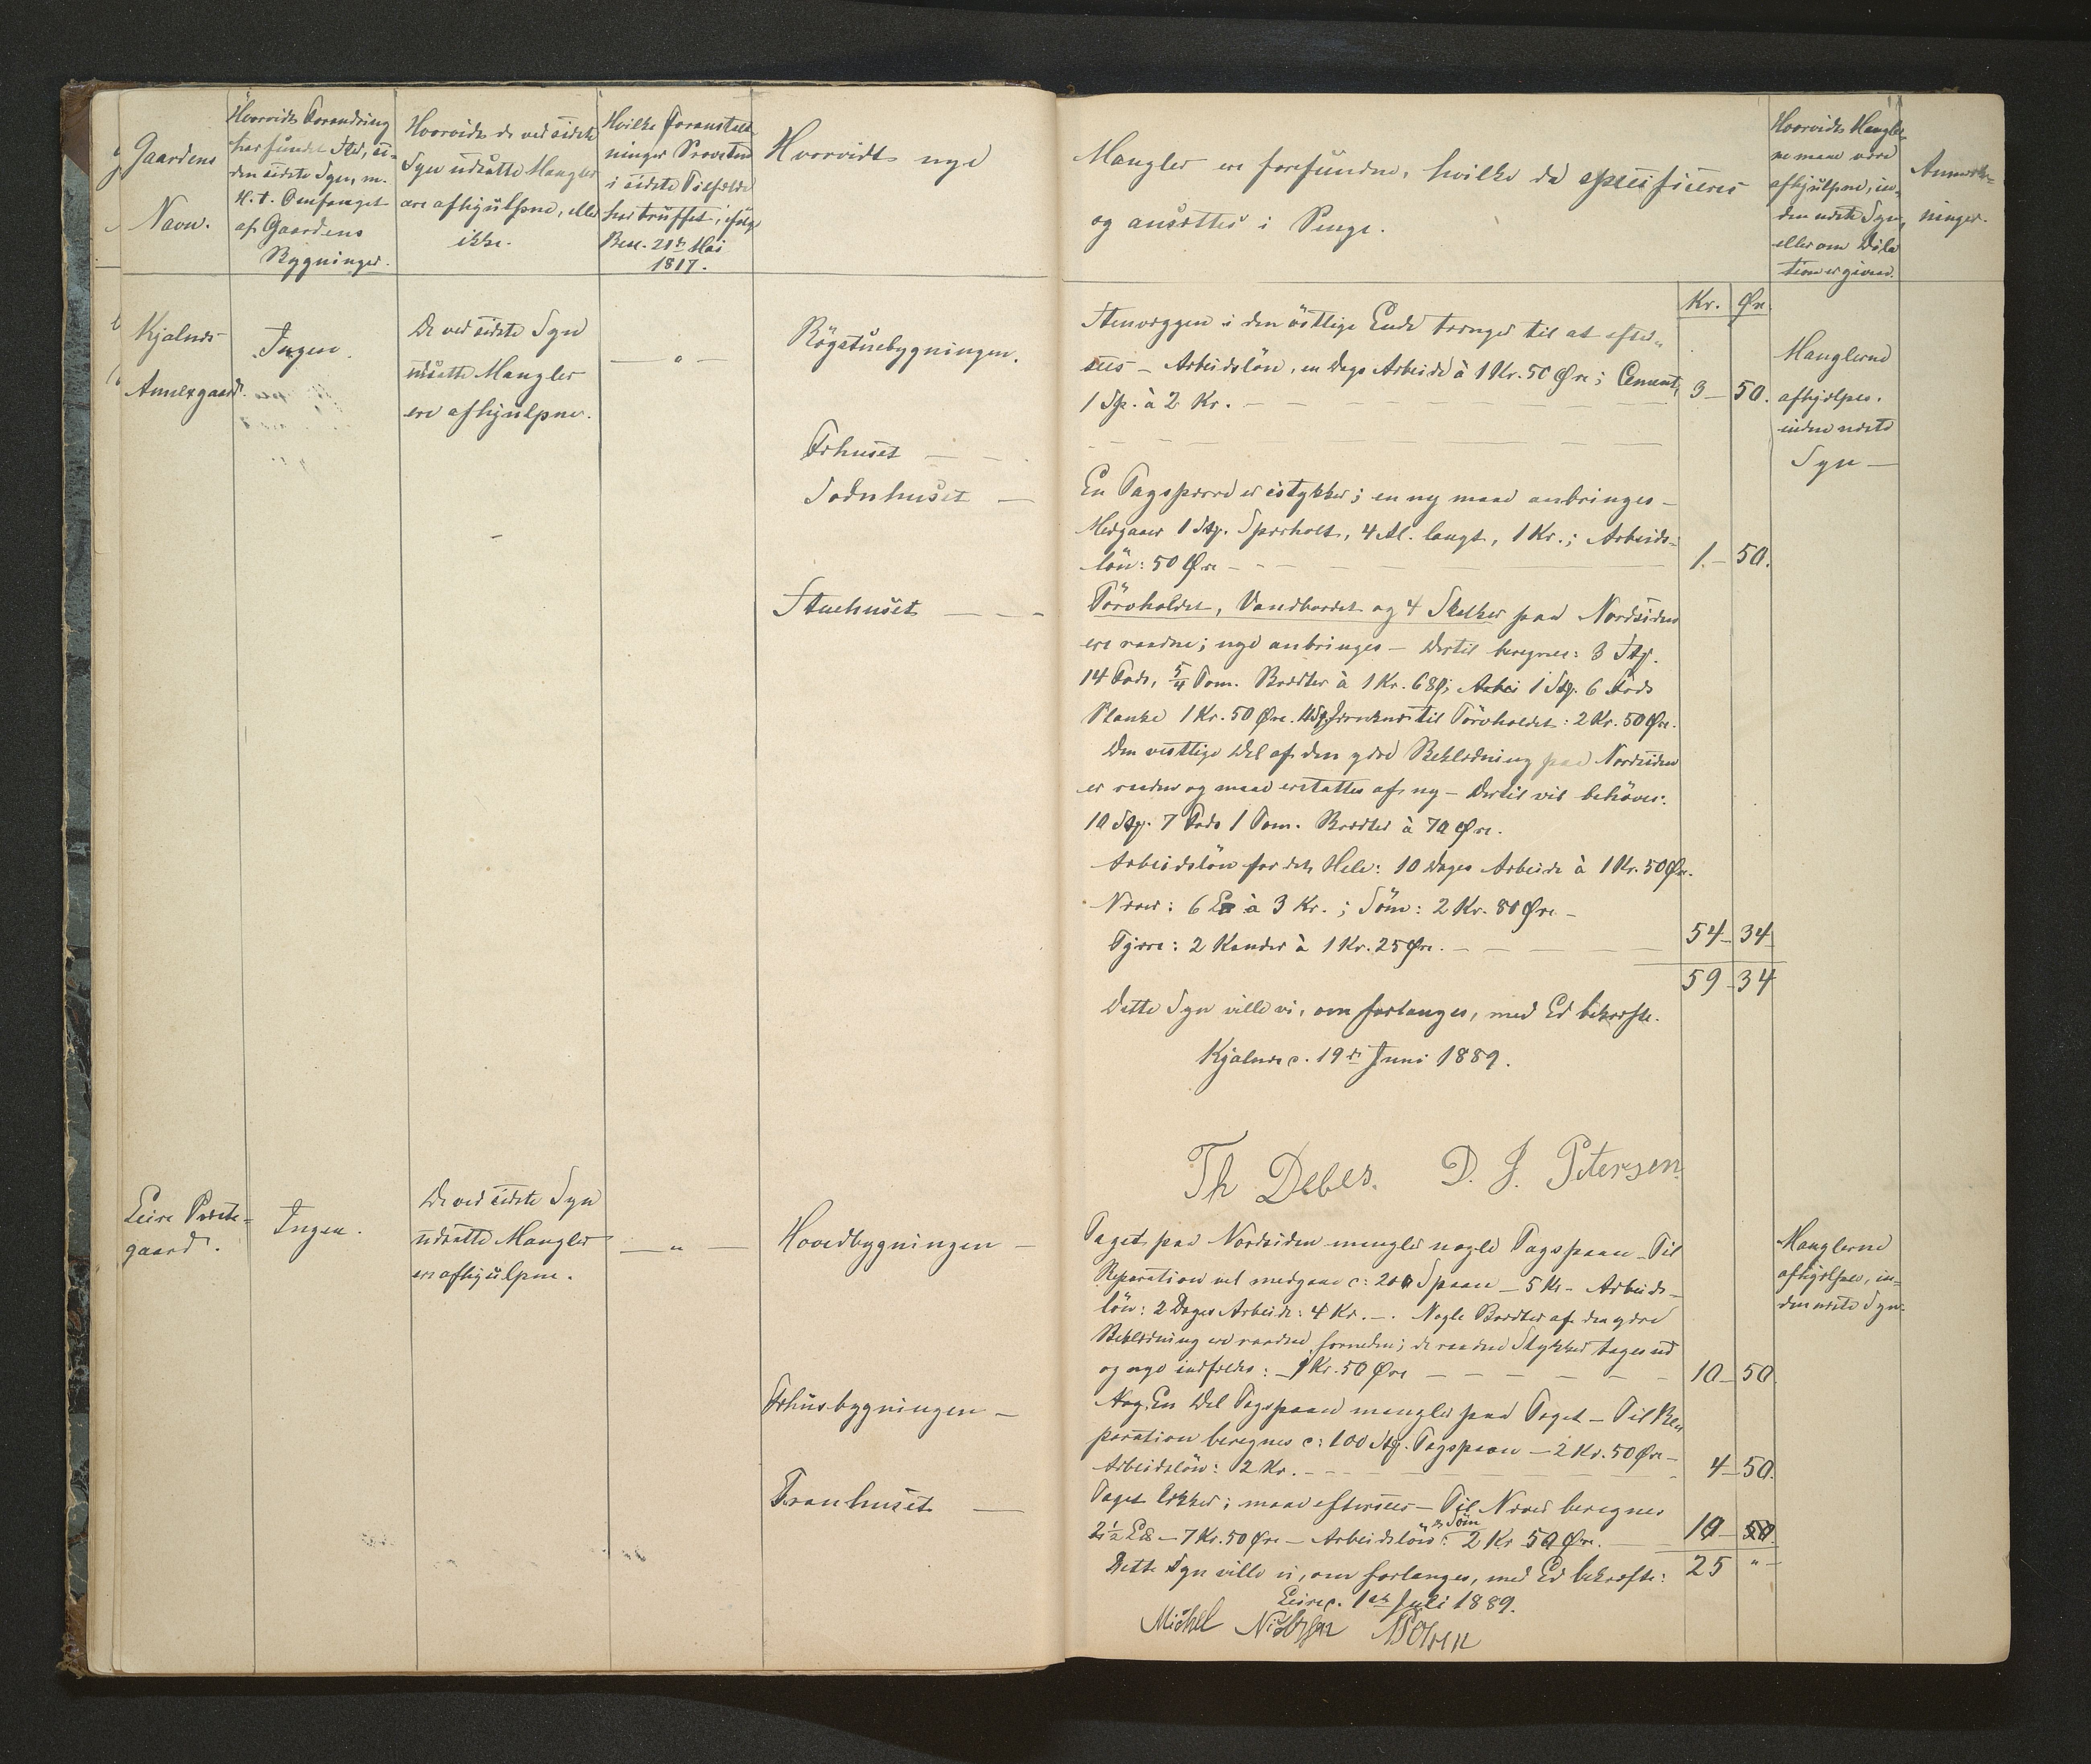 Gaardens
Navn.
Hvorvidt Forandring
har fundet Sted, si-
den sidste Syn, m.
H. t. Omfanget
af Gaardens
Bygninger.
Hvorvidt de ved sidste
Syn udsatte Mangler
ere afhjulpne, eller
ikke.
Hvilke Foranstalt-
ninger Provsten
i sidste Tilfælde
har truffet, ifølg
Resc. 21de Mai
1817.
Hvorvidt nye
Mangler ere forefundne, hvilke da specificeres
og ansættes i Penge.
Hvorvidt Mangler-
ne maae være
afhjulpne, in-
den næste Syn,
eller om Dila
tion er given.
Anmærk-
ninger.
Kr. Øre.
Kjalnæs
Annexgaard.
Ingen.
De ved sidste Syn
udsatte Mangler
ere afhjulpne.
— " —
Rögstuebygningen.
Stenvæggen i den östlige Ende trænger til at efter-
sees — Arbeidslön, en Dags Arbeide à 1 Kr. 50 Øre; Cement,
1 Sp. à 2 Kr. — 3 — 50.
Manglerne
afhjælpes.
inden næste
Syn —
Fæhuset —
Sodnhuset —
En Tagsperre er i stykker; en ny maae anbringes —
Medgaaer 1 Stg. Spærholt, 4 Al. langt, 1 Kr.; Arbeids-
lön: 50 Øre — 1. — 50.
Stuehuset —
Törvholdet, Vandbordet og 4 Stolker paa Nordsiden
ere raadne; nye anbringes — Dertil beregnes: 3 Stg.
14 Fods, 5/4 Tom. Brædder à 1 Kr. 68 Ø; 1 Stg. 6 Fods
Planke 1 Kr. 50 Øre. til Törvholdet: 2 Kr. 50 Øre.
Den vestlige Del af den ydre Beklædning paa Nordsiden
er raaden og maae erstattes af ny — Dertil vil behöves:
10 Stg. 7 Fods 1 Tom. Brædder à 70 Øre.
Arbeidslön for det Hele: 10 Dages Arbeide à 1 Kr. 50 Øre.
Næver: 6 à 3 Kr.; Söm: 2 Kr. 80 Øre —
Tjære: 2 Kander à 1 Kr. 25 Øre. — 54 — 34
59 — 34
Dette Syn ville vi, om forlanges, med Ed bekræfte.
Kjalnæs. 19de Juni 1889.
Th Debes. D. J. Petersen
Leire Præste-
gaard.
Ingen.
De ved sidste Syn
udsatte Mangler
ere afhjulpne.
— " —
Hovedbygningen —
Taget paa Nordsiden mangler nogle Tagspaan — Til
Reparation vil medgaae c: 200 Spaan — 5 Kr — Arbeids-
lön: 2 Dages Arbeide: 4 Kr. — . Nogle Brædder af den ydre
Beklædning ere raadne forneden; de raadne Stykker tages ud
og nye indfældes: — 1 Kr. 50 Øre — 10 — 50
Manglerne
afhjælpes, in-
den næste Syn.
Fæhusbygningen —
En Del Tagspaan mangler paa Taget — Til Re-
paration beregnes c: 100 Stg. Tagspaan — 2 Kr. 50 Øre —
Arbeidslön: 2 Kr. — 4 — 50.
Tranhuset —
Taget lækker; maae eftersees — Til Næver beregnes
2½ — 7 Kr. 50 Øre — Arbeidslön og Söm: 2 Kr 50 Øre. — 10 —
25 " —
Dette Syn ville vi, om forlanges, med Ed bekræfte:
Leire. 1ste Juli 1889.
Michel